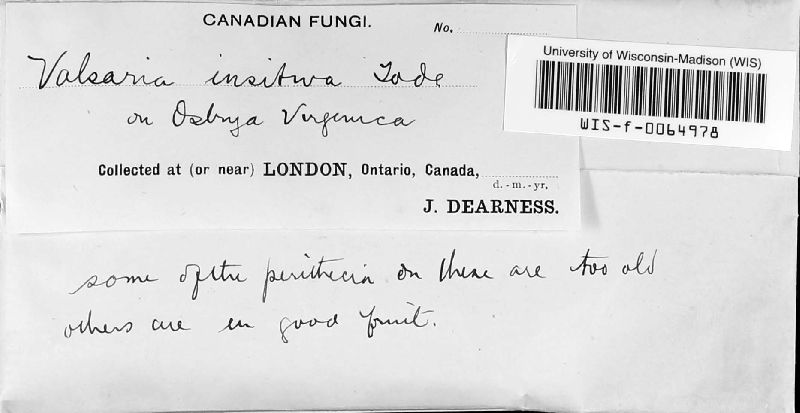 CANADIAN FUNGI.
No.
Valsaria insitiva Tode
on Ostrya Virginica
Collected at (or near) LONDON, Ontario, Canada,
d. - m. - yr.
J. DEARNESS.
University of Wisconsin-Madison (WIS)
WIS-f-0064978
some of the perithecia on these are too old
others are in good fruit.